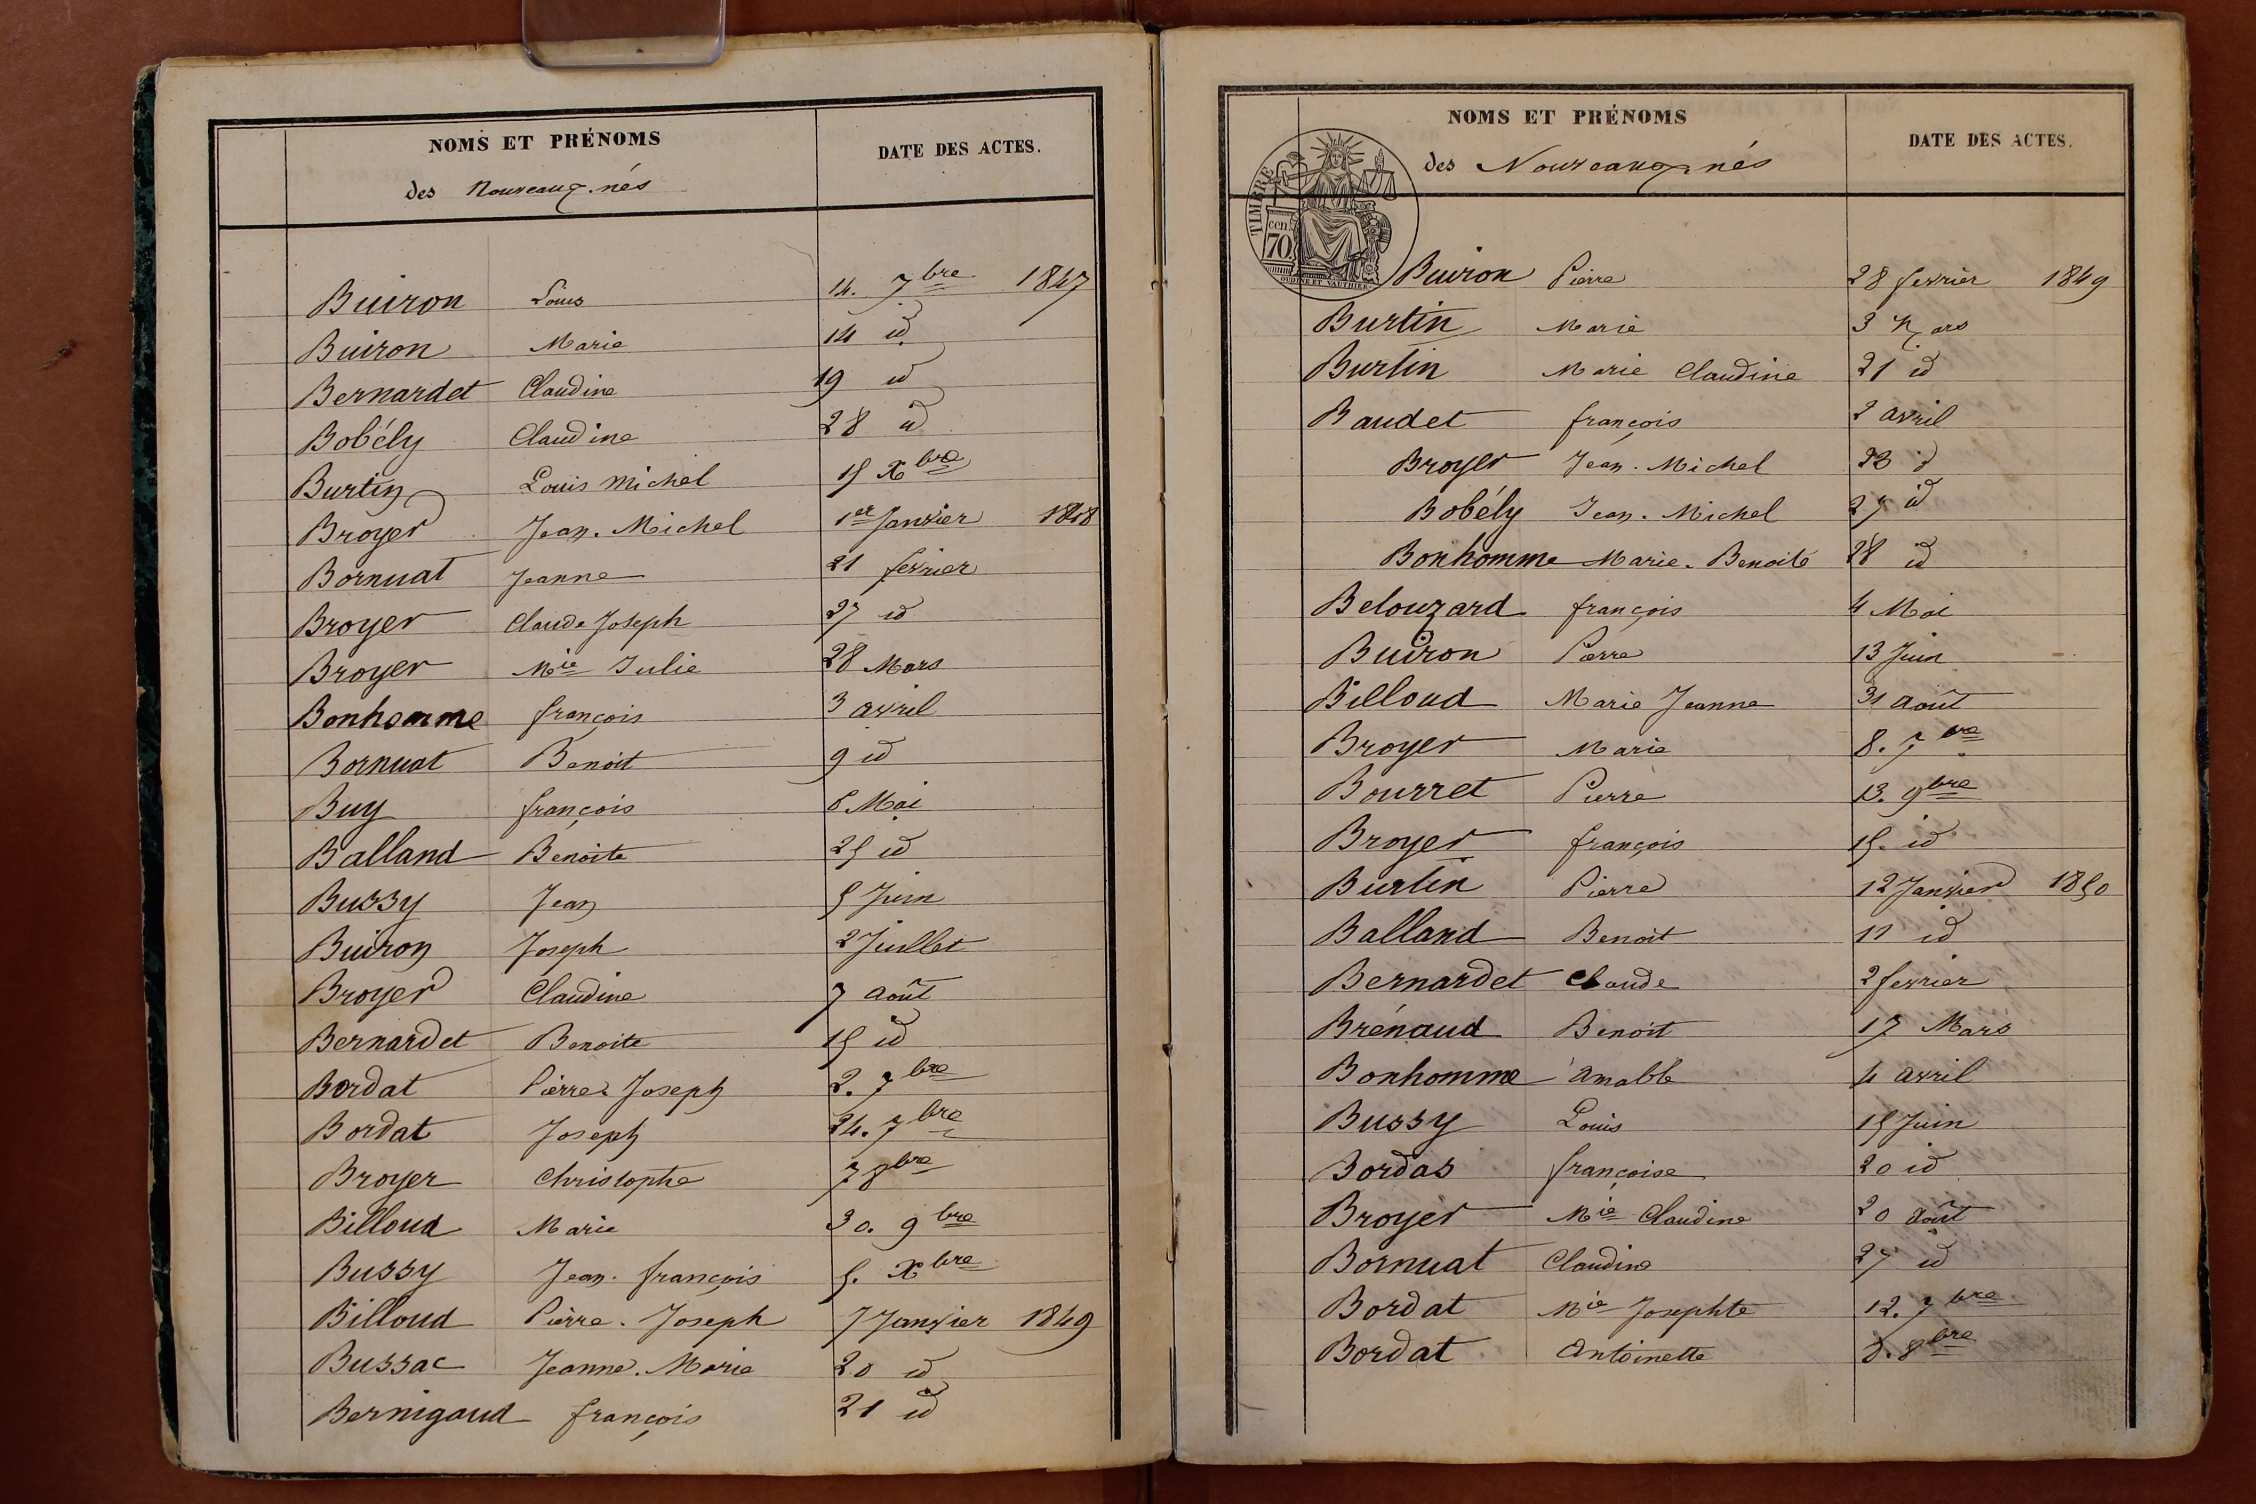 NOMS ET PRÉNOMS
DATE DES ACTES.
des Nouveaux-nés
Buiron Louis 14. 7bre 1847
Buiron Marie 14 id
Bernardet Claudine 19 id
Bobély Claudine 28 id
Burtin Louis Michel 15 Xbre
Broyer Jean-Michel 1er Janvier 1848
Bornuat Jeanne 21 fevrier
Broyer Claude Joseph 27 id
Broyer Mie Julie 28 Mars
Bonhomme françois 3 avril
Bornuat Benoit 9 id
Buy françois 6 Mai
Balland Benoite 25 id
Bussy Jean 5 Juin
Buiron Joseph 2 Juillet
Broyer Claudine 7 août
Bernardet Benoite 15 id
Bordat Pierre Joseph 2. 7bre
Bordat Joseph 24. 7bre
Broyer Christophe 7 8bre
Billoud Marie 30. 9bre
Bussy Jean-françois 5. Xbre
Billoud Pierre-Joseph 7 Janvier 1849
Bussac Jeanne-Marie 20 id
Bernigaud françois 21 id
NOMS ET PRÉNOMS
DATE DES ACTES.
des Nouveaux-nés
TIMBRE
cen.
70
OUDINÉ ET VAUTHIER
Buiron Pierre 28 fevrier 1849
Burtin Marie 3 Mars
Burtin Marie Claudine 21 id
Baudet françois 2 avril
Broyer Jean-Michel 23 id
Bobély Jean-Michel 27 id
Bonhomme Marie-Benoite 28 id
Belouzard françois 4 Mai
Buiron Pierre 13 Juin
Billoud Marie Jeanne 31 août
Broyer Marie 8. 7bre
Bourret Pierre 13. 9bre
Broyer françois 15. id
Burtin Pierre 12 Janvier 1850
Balland Benoit 11 id
Bernardet Claude 2 fevrier
Brénaud Benoit 17 Mars
Bonhomme Amable 4 avril
Bussy Louis 15 Juin
Bordas françoise 20 id
Broyer Mie Claudine 20 août
Bornuat Claudine 27 id
Bordat Mie Josephte 12. 7bre
Bordat Antoinette 8bre